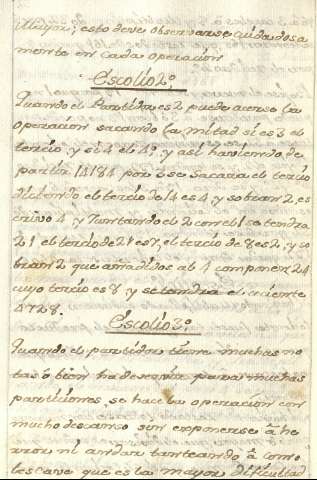 Mayor; esto deve observarse cuidadosa
mente en cada operacion
Escolio 2º
Quando el Partidor es 2 puede acerse la
operacion sacando la mitad si es 3 el
tercio, y si 4 el 4º, y asi haviendo de
partir 14184 por 3 se sacara el tercio
diciendo el tercio de 14 es 4 y sobran 2, es
crivo 4 y Juntando el 2 con el 1 se tendra
21 el tercio de 21 es 7, el tercio de 8 es 2, y so
bran 2 que añadidos al 4 componen 24
cuyo tercio es 8 y se tendra el cociente
4728.
Escolio 3º
Quando el partidor tiene muchas no
tas o bien ha de servir para muchas
particiones, se hace la operacion con
mucho descanso sin exponerse â he
rror ni andar tanteando â como
les cave que es la mayor dificultad